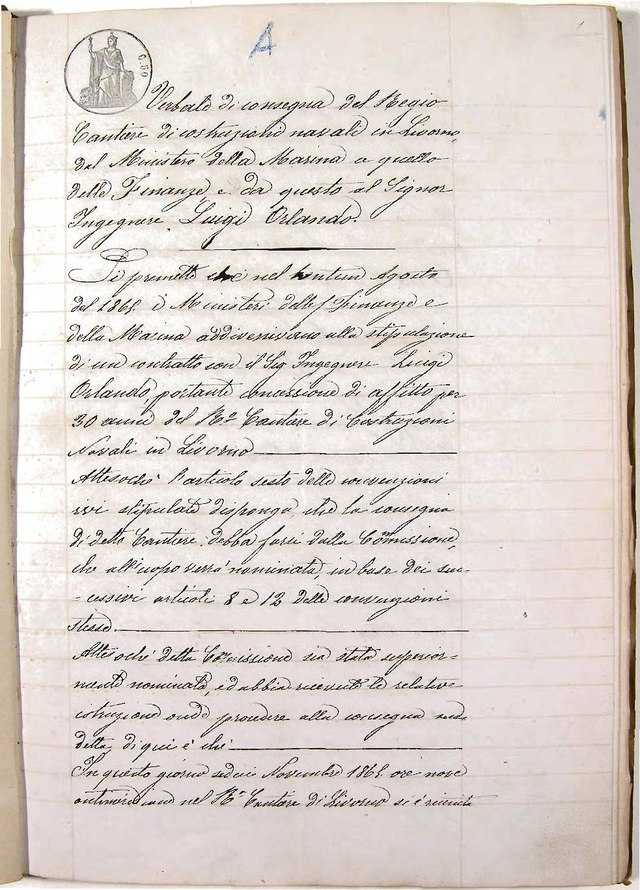 A
1
C. 50
Verbale di consegna del Regio
Cantiere di costruzioni navali in Livorno,
dal Ministero della Marina a quello
delle Finanze e da questo al Signor
Ingegnere Luigi Orlando.
Si premette che nel Agosto
del 1865. i Ministeri delle Finanze e
della Marina addivenivano alla stipulazione
di un contratto con il Sig Ingegnere Luigi
Orlando, portante concessione di affitto per
30 anni del Ro Cantiere di Costruzioni
Navali in Livorno
Attesochè l'articolo sesto delle convenzioni
ivi stipulate disponga che la consegna
di detto Cantiere debba farsi dalla Commissione,
che all'uopo verrà nominata, in base dei suc-
-cessivi articoli 8 e 12 delle convenzioni
stesse
Attesochè detta Commissione sia stata superior-
mente nominata, ed abbia ricevute le relative
istruzioni onde procedere alla consegna sud
detta, di qui è che
In questo giorno sedici Novembre 1865 ore nove
antimeridiane nel Ro Cantiere di Livorno si è riunita